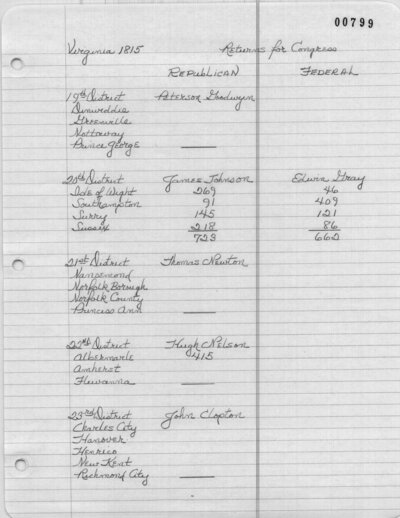 00799
Virginia 1815 Returns for Congress
REPUBLICAN FEDERAL
19th District Peterson Goodwyn
Dinwiddie
Greenville
Nottoway
Prince George
20th District James Johnson Edwin Gray
Isle of Wight 269 46
Southampton 91 409
Surry 145 121
Sussex 218 86
723 662
21st District Thomas Newton
Nansemond
Norfolk Borough
Norfolk County
Princess Ann
22nd District Hugh Nelson
Albermarle 415
Amherst
Fluvanna
23rd District John Clopton
Charles City
Hanover
Henrico
New Kent
Richmond City